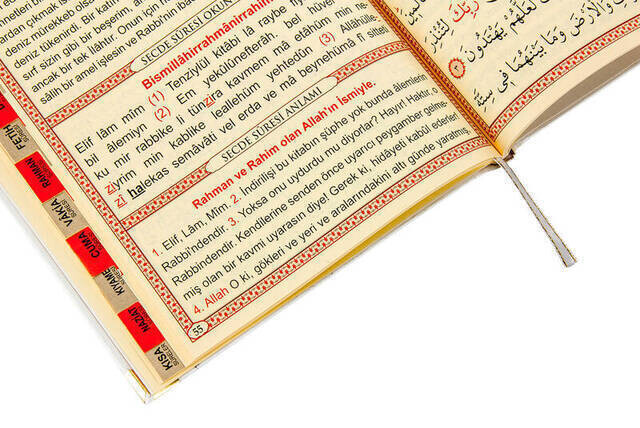 deniz mürekkep olsa
deniz tükenirdi. Bir katı
sırf sizin gibi bir beşerim, am
ancak bir tek ilâhtır. Onun için h
sâlih bir amel işlesin ve Rabbi'ne ibad
SECDE SÛRESİ OKUN
Bismillâhirrahmânirrahîm
Elif lâm mîm (1) Tenzîylül kitâbi lâ raybe
bil âlemiyn (2) Em yekûlûnefterâh. bel hüvel
ku mir rabbike li tünzira kavmem mâ etâhüm min ne
ziyrim min kablike leallehüm yehtedûn (3) Allâhülle-
zî halekas semâvâti vel erda ve mâ beynehümâ fî sitteti
SECDE SÛRESİ ANLAMI
Rahman ve Rahim olan Allah'ın İsmiyle.
1. Elif, Lâm, Mîm. 2. İndirilişi bu kitabın şüphe yok bunda âlemlerin
Rabbi'ndendir. 3. Yoksa onu uydurdu mu diyorlar? Hayır! Haktır, o
Rabbindendir. Kendilerine senden önce uyarıcı peygamber gelme-
miş olan bir kavmi uyarasın diye! Gerek ki, hidâyeti kabûl ederler!
4. Allah O ki, gökleri ve yeri ve aralarındakini altı günde yaratmış,
55
رَبِّكَ لِتُنْذِرَ
لَعَلَّهُمْ يَهْتَدُونَ
وَالْأَرْضَ وَمَا بَيْنَهُمَا فِي سِتَّةِ
FETİH
RAHMAN
VAKİA
CUMA
KIYAME
NAZİAT
KISA
SURELER